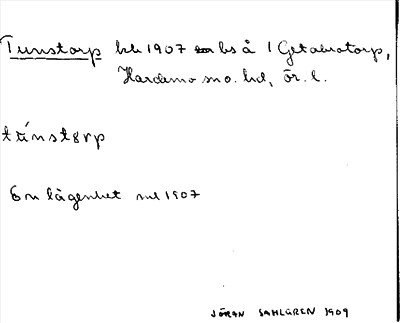 Tunstorp hk 1907 bs å 1 Getabrotorp,
Hardemo sn o. hd, Ör. l.
tu̇nstɤrp
En lägenhet enl 1907
JÖRAN SAHLGREN 1909